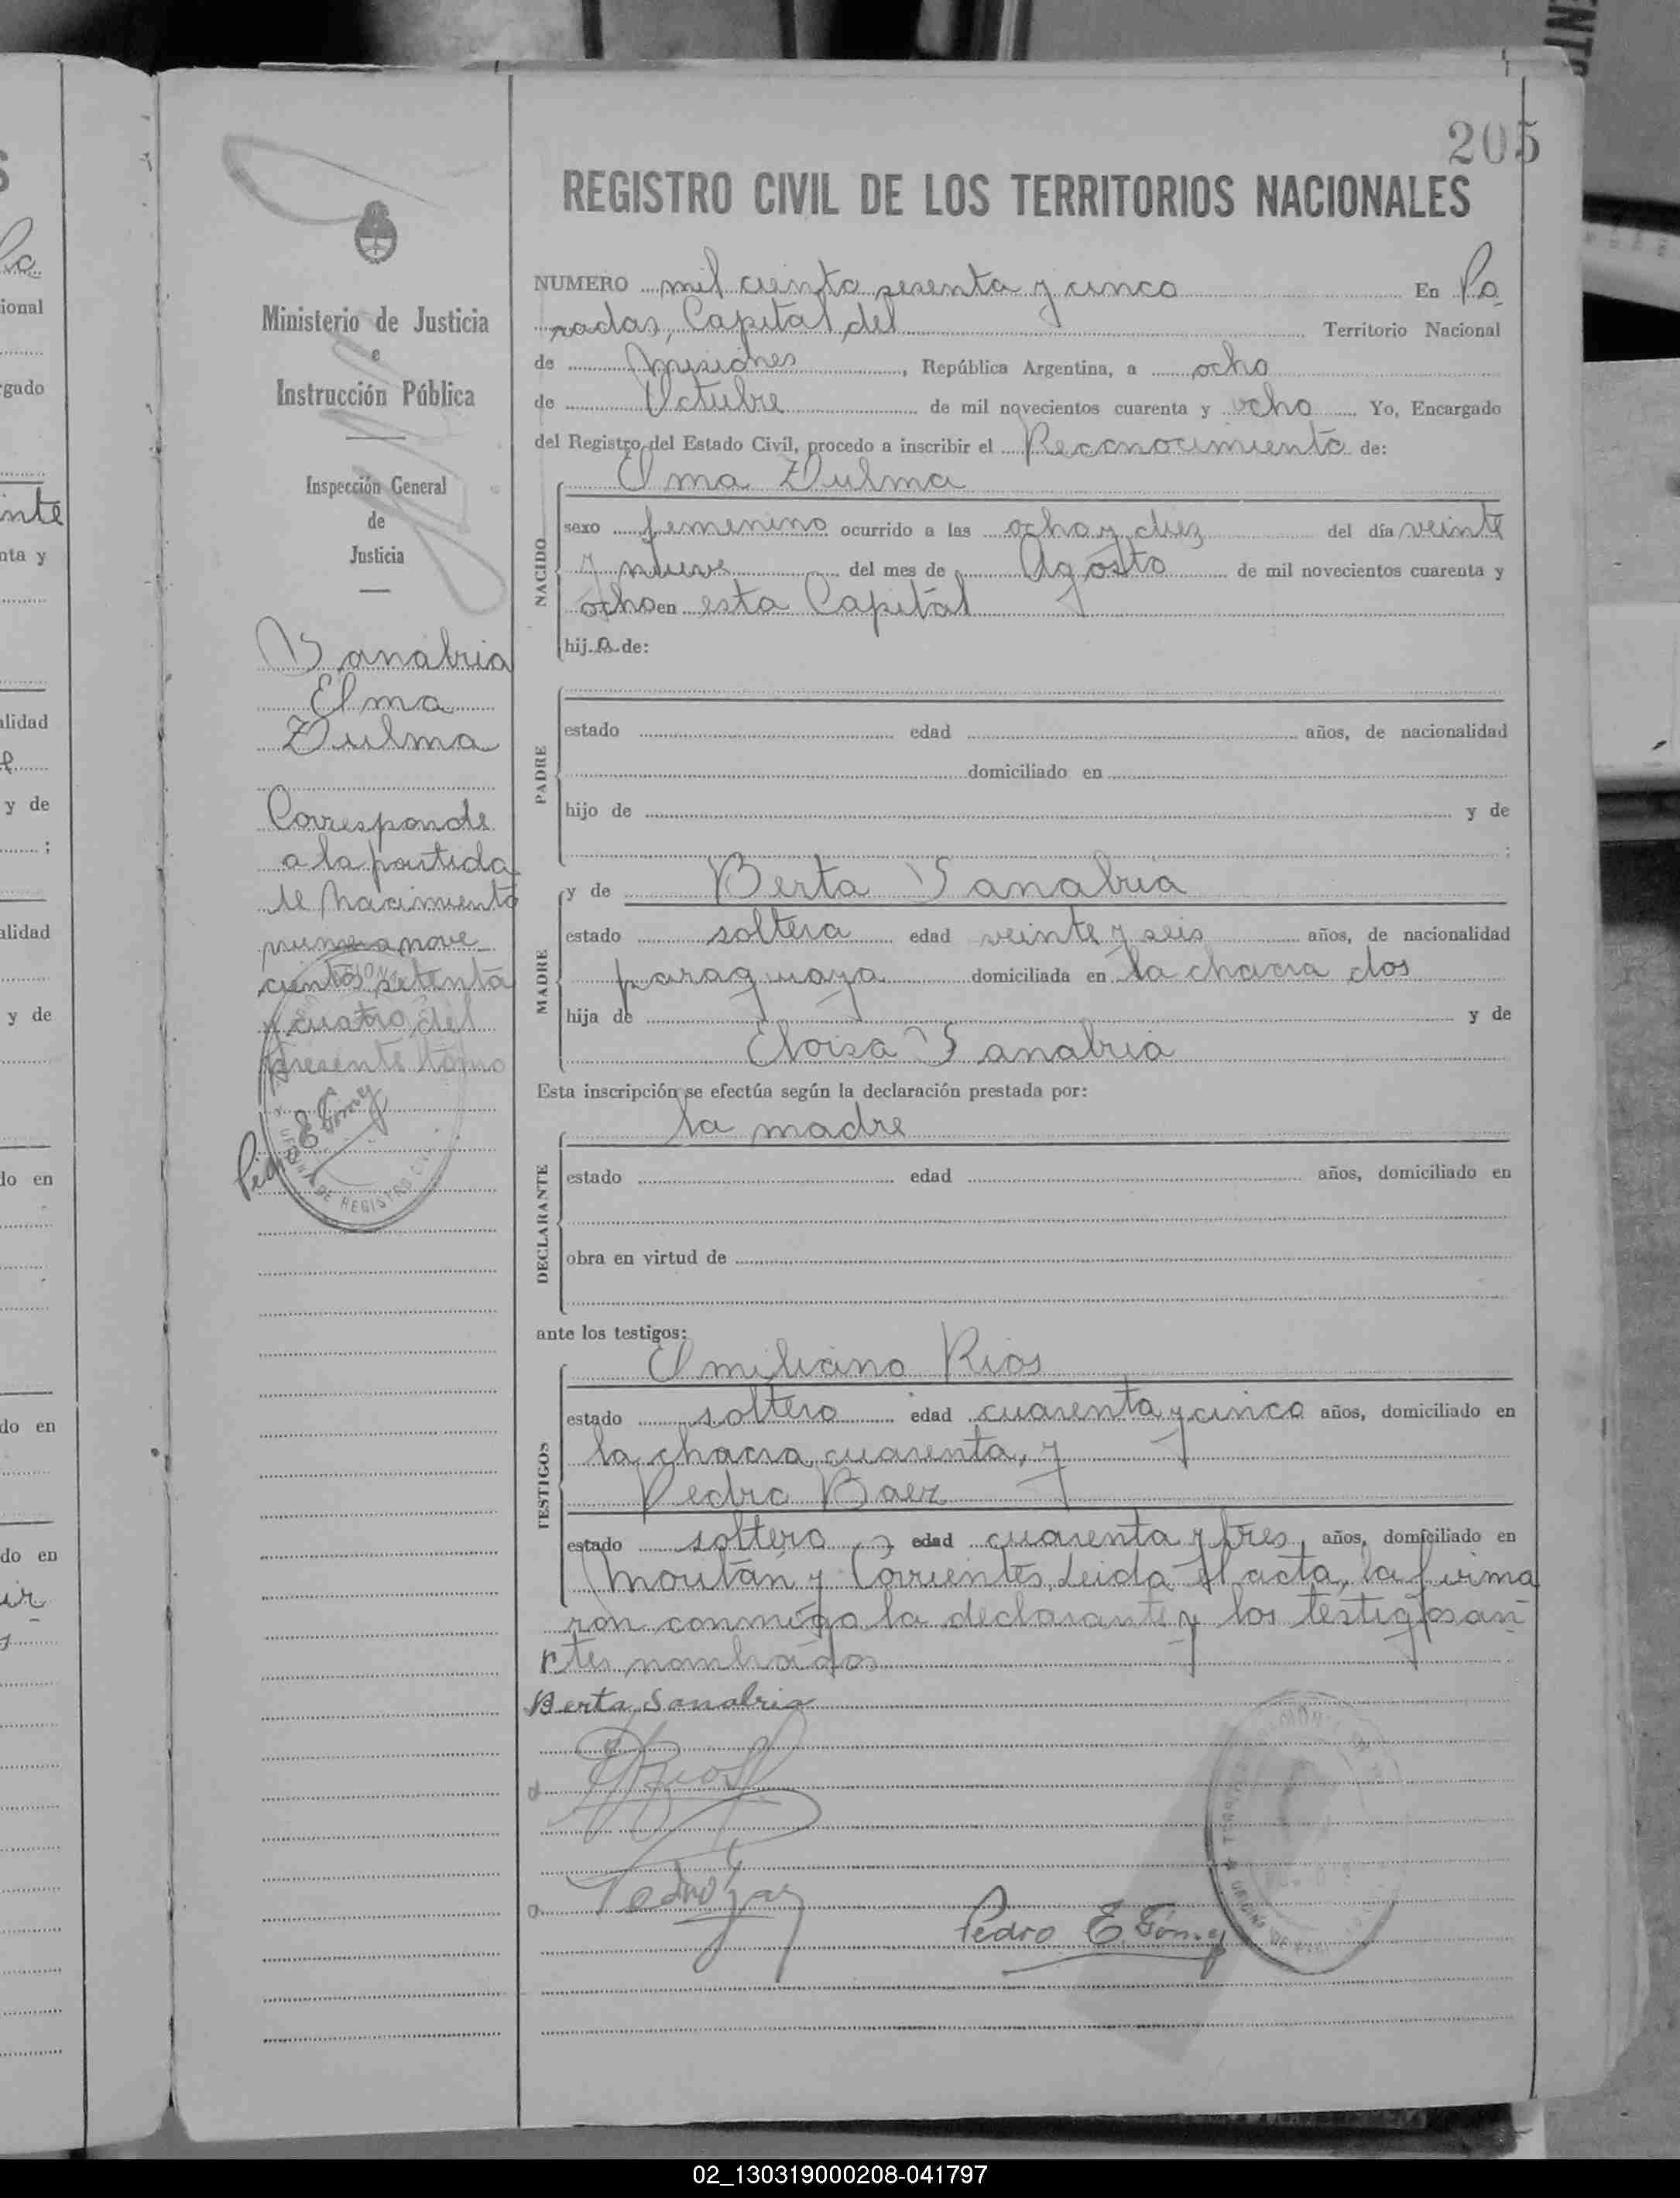 205
REGISTRO CIVIL DE LOS TERRITORIOS NACIONALES
Ministerio de Justicia
e
Instrucción Pública
Inspección General
de
Justicia
Sanabria
Elma
Zulma
Corresponde
a la partida
de nacimiento
número nove
cientos setenta
y cuatro del
presente tomo
Pedro E Gómez
NUMERO mil ciento sesenta y cinco En Po
sadas, Capital del Territorio Nacional
de Misiones, República Argentina, a ocho
de Octubre de mil novecientos cuarenta y ocho Yo, Encargado
del Registro del Estado Civil, procedo a inscribir el Reconocimiento de:
Elma Zulma
NACIDO
sexo femenino ocurrido a las ocho y diez del día veinte
y nueve del mes de Agosto de mil novecientos cuarenta y
ocho en esta Capital
hija de:
PADRE
estado edad años, de nacionalidad
domiciliado en
hijo de y de
;
MADRE
y de Berta Sanabria
estado soltera edad veinte y seis años, de nacionalidad
paraguaya domiciliada en la chacra dos
hija de y de
Eloisa Sanabria
Esta inscripción se efectúa según la declaración prestada por:
la madre
DECLARANTE
estado edad años, domiciliado en
obra en virtud de
ante los testigos:
Emiliano Rios
TESTIGOS
estado soltero edad cuarenta y cinco años, domiciliado en
la chacra cuarenta, y
Pedro Baez
estado soltero edad cuarenta y tres años, domiciliado en
Moritán y Corrientes. Leida el acta, la firma
ron conmigo la declarante y los testigos an
tes nombrados
Berta Sanabria
Pedro E. Gómez
OFICINA DE REGISTRO
02_130319000208-041797